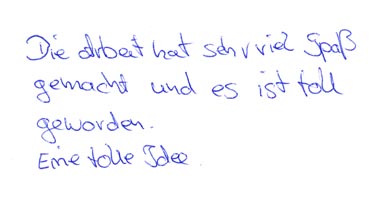 Die Arbeit hat sehr viel Spaß
gemacht und es ist toll
geworden.
Eine tolle Idee.